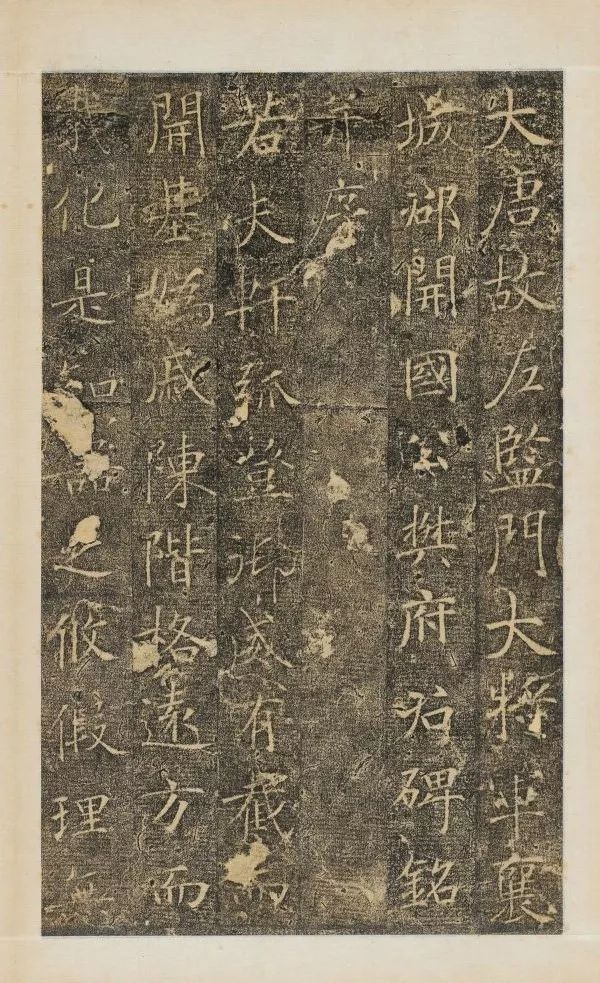 大唐故左監門大將軍襄
城郡開國公樊府君碑銘
并序
若夫軒弧登御威有截而
開基媯戚陳階格遠方而
化是知器之攸假理無